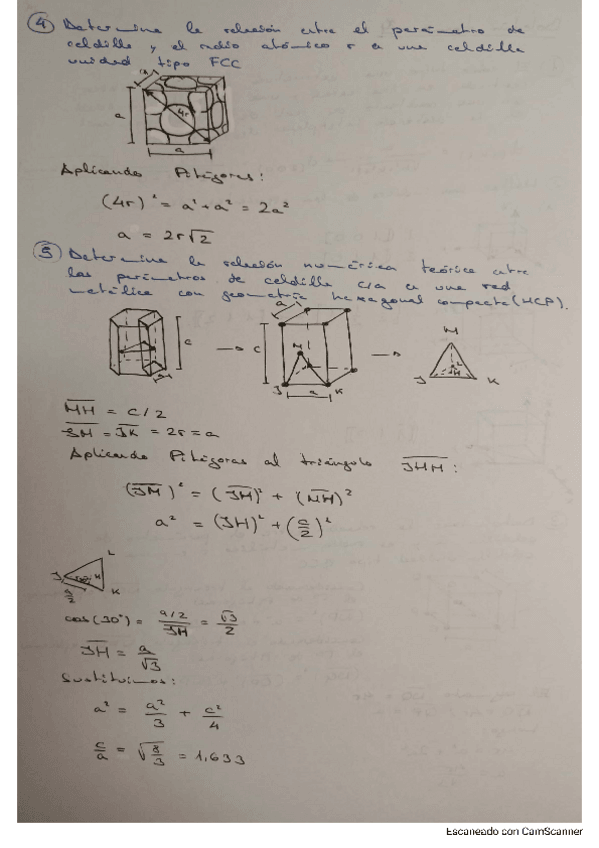 ④ Determine la relación entre el parámetro de
celdilla y el radio atómico r en una celdilla
unidad tipo FCC
a
4r
a
Aplicando Pitágoras:
(4r)² = a² + a² = 2a²
a = 2r√2
⑤ Determine la relación numérica teórica entre
los parámetros de celdilla c/a en una red
metálica con geometría hexagonal compacta (HCP).
c
a
c
a
M
J
a
K
M
J
H
L
K
MH = c/2
JM = JK = 2r = a
Aplicando Pitágoras al triángulo JHM:
(JM)² = (JH)² + (MH)²
a² = (JH)² + (c/2)²
J
30°
H
L
K
a/2
cos(30°) = a/2 / JH = √3/2
JH = a/√3
Sustituimos:
a² = a²/3 + c²/4
c/a = √8/3 = 1,633
Escaneado con CamScanner